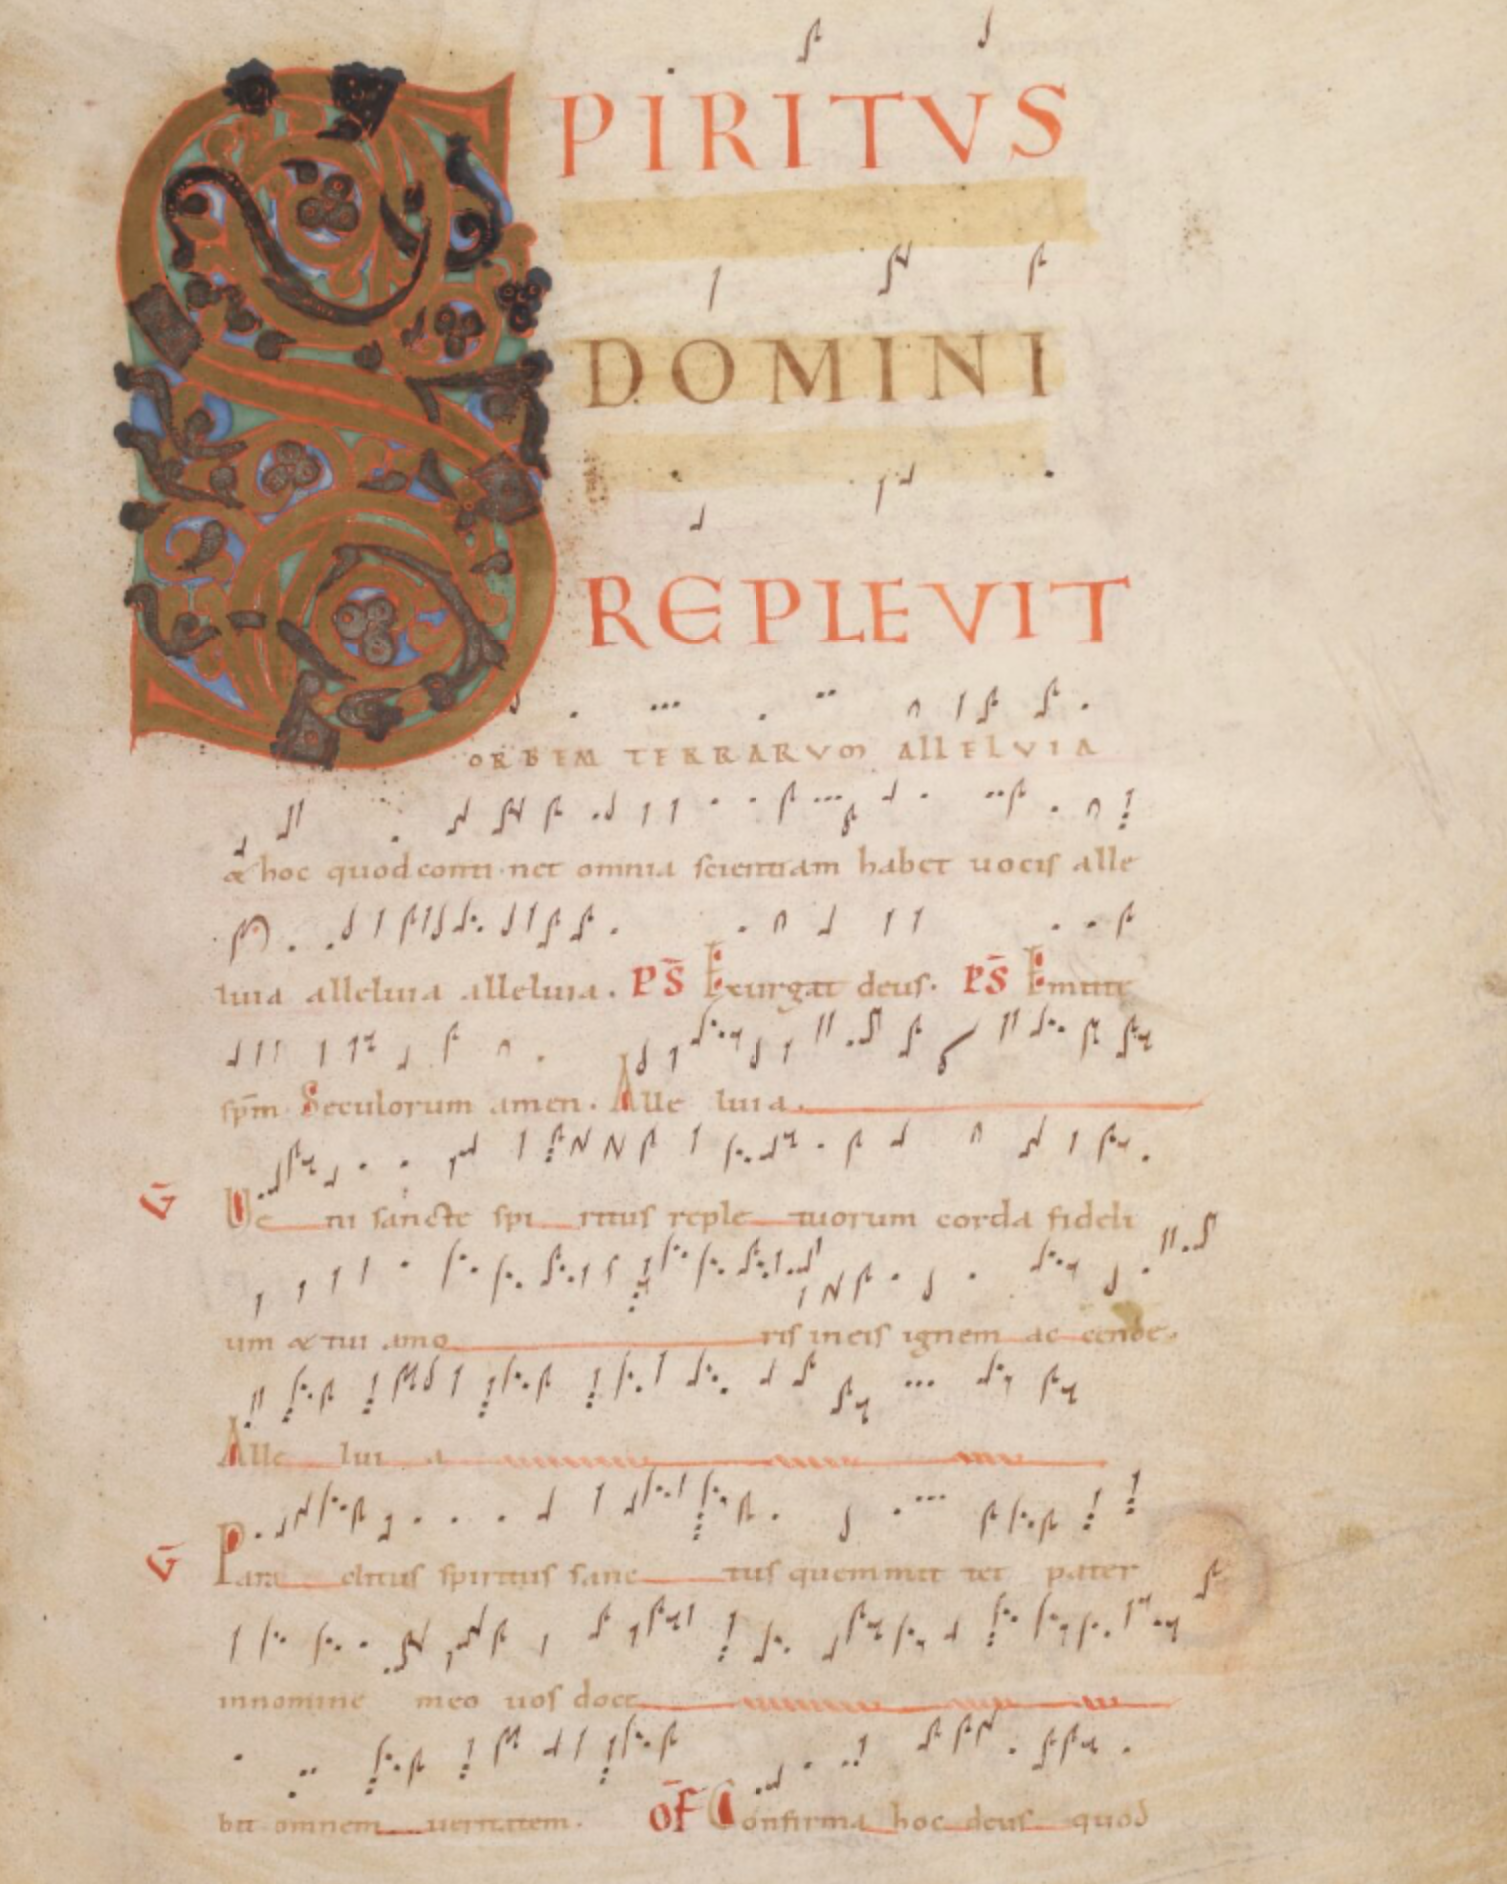 SPIRITVS
DOMINI
REPLEVIT
ORBEM TERRARVM ALLELVIA
& hoc quod conti net omnia scientiam habet uocis alle
luia alleluia alleluia. PS̄ Exurgat deus. PS̄ Emitte
sp̄m Seculorum amen. Alle luia.
V̄ Ue ni sancte spi ritus reple tuorum corda fideli
um & tui amo ris in eis ignem ac cende.
Alle lui a
V̄ Para clitus spiritus sanc tus quem mit tet pater
in nomine meo uos doce
bit omnem ueritatem. OF̄ Confirma hoc deus quod